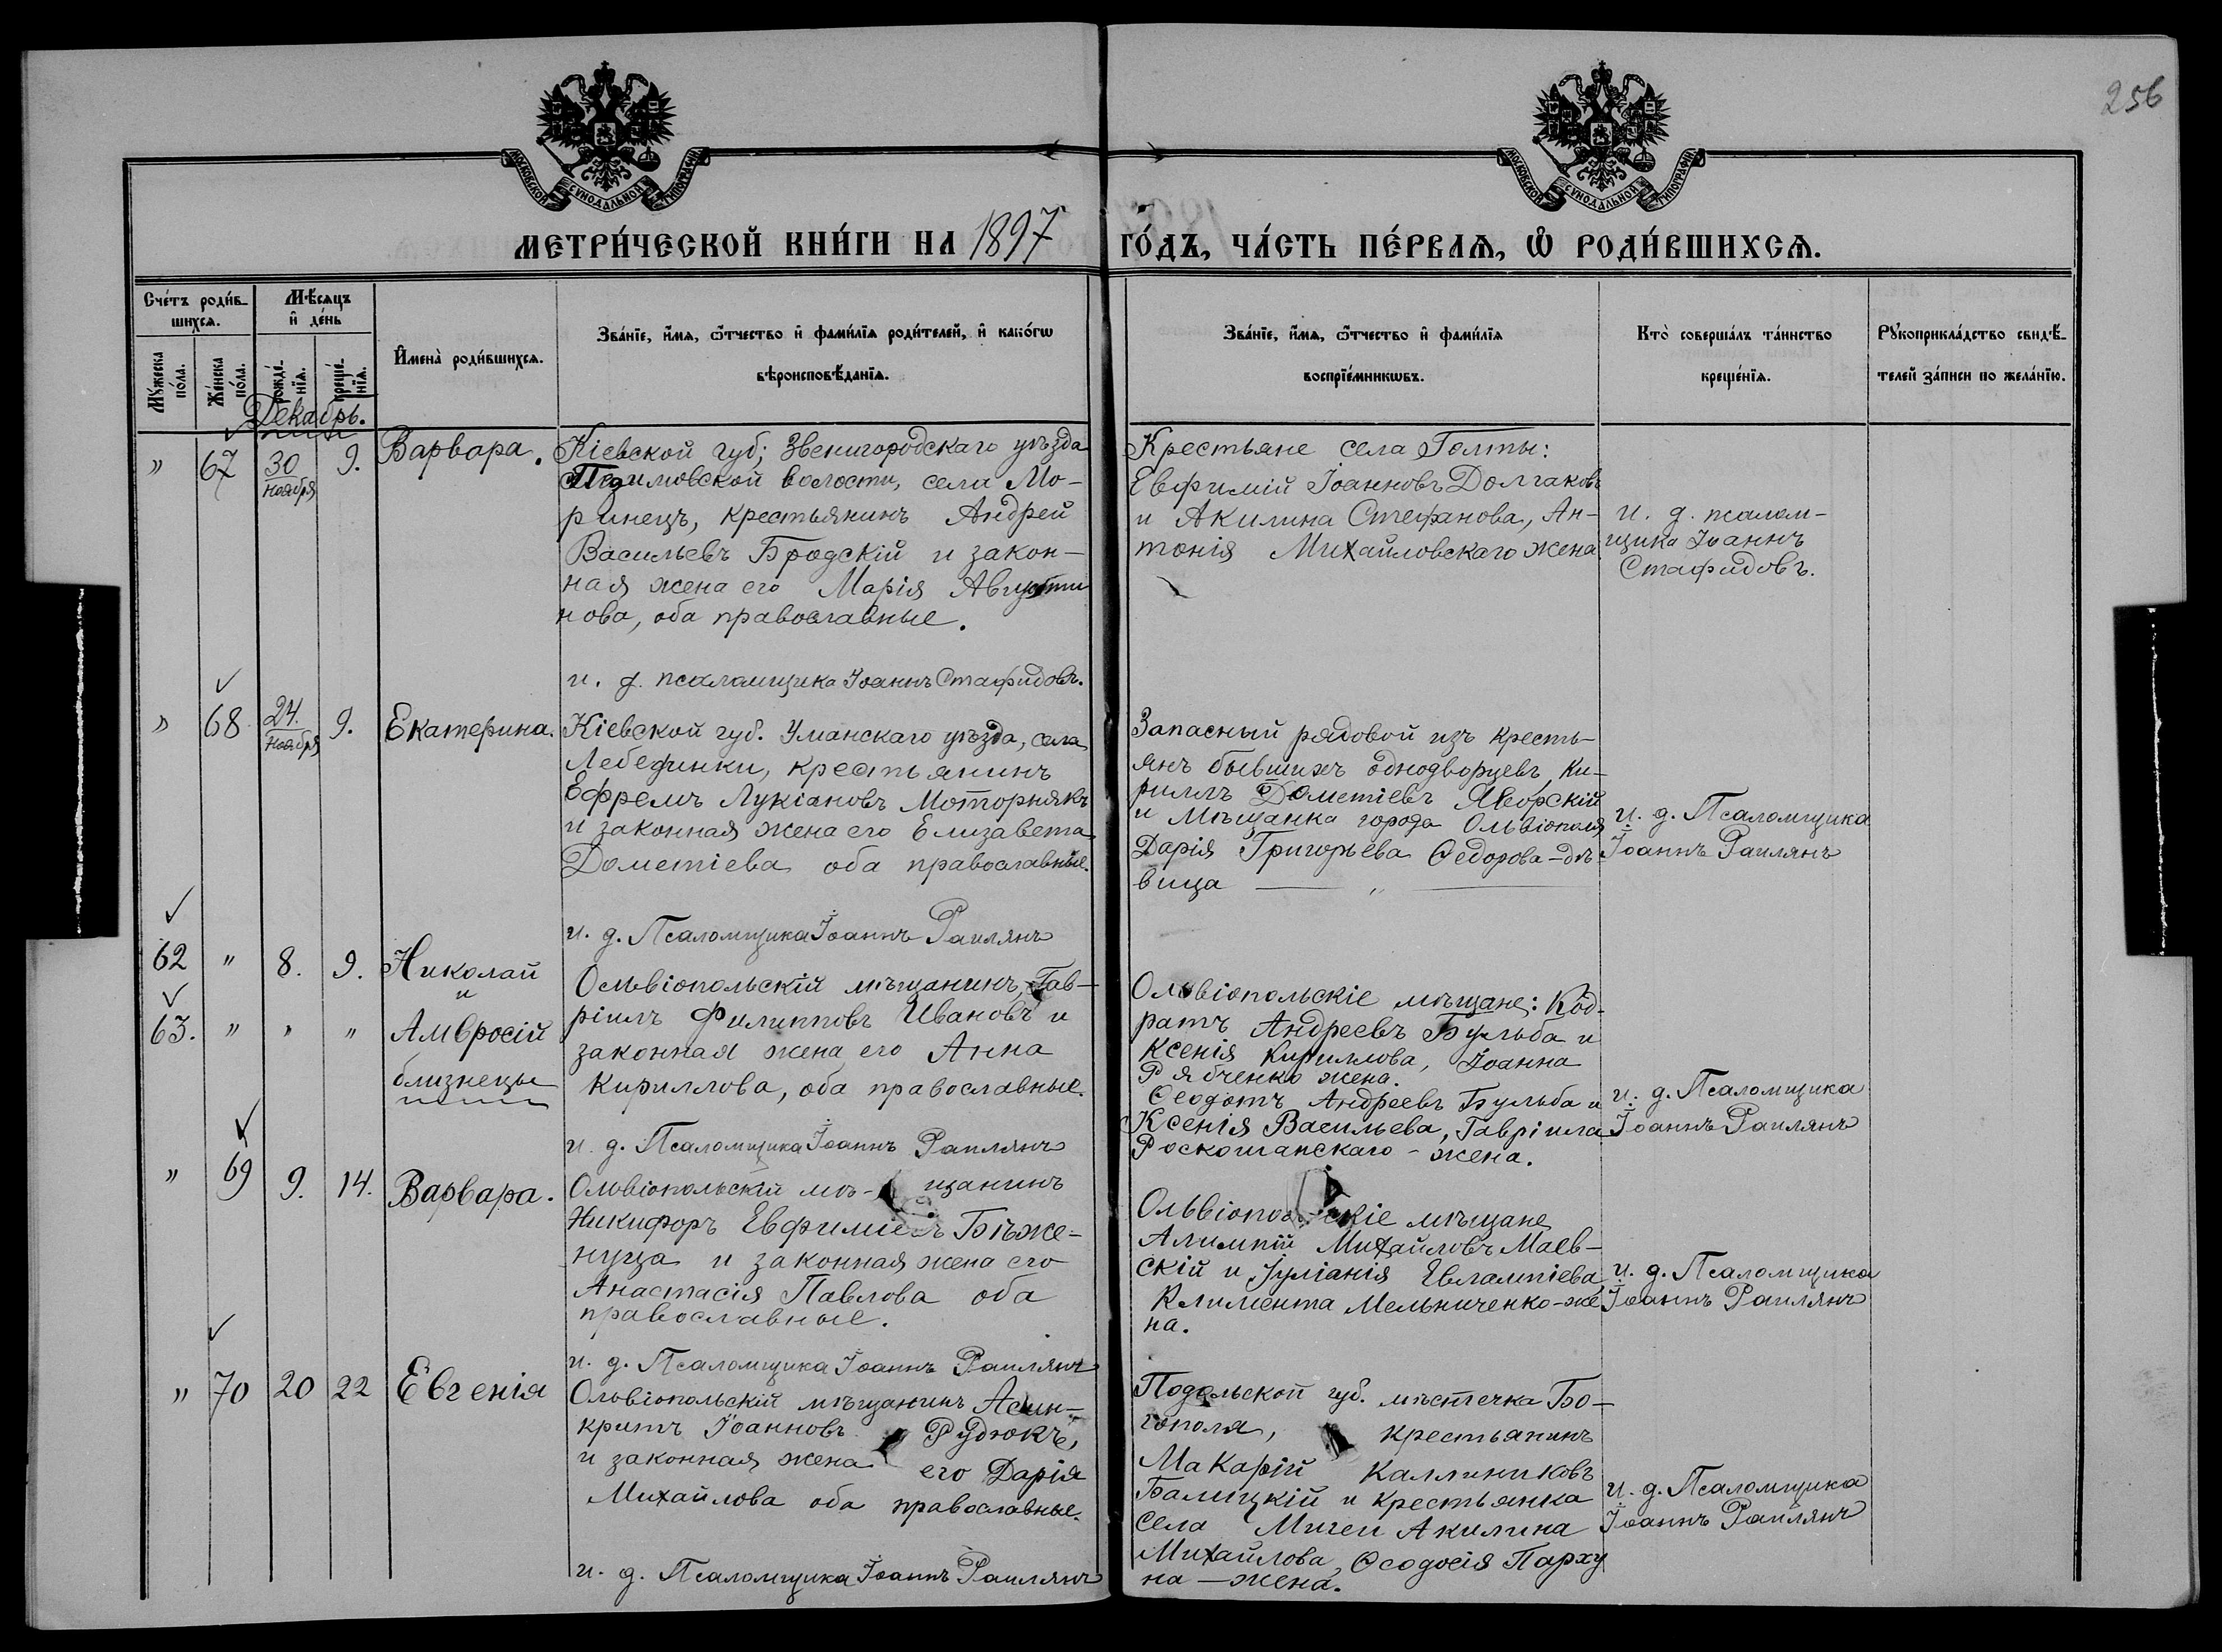 256
МОСКОВСКОЙ СУНОДАЛЬНОЙ ТИПОГРАФІИ
МОСКОВСКОЙ СУНОДАЛЬНОЙ ТИПОГРАФІИ
МЕТРИ́ЧЕСКОЙ КНИ́ГИ НА 1897 ГО́ДЪ, ЧА́СТЬ ПЕ́РВАѦ, Ѽ РОДИ́ВШИХСѦ.
Сче́тъ роди́в-
шихсѧ.
Мꙋ́жеска по́ла.
Же́нска по́ла.
Мѣ́сѧцъ
и҆ де́нь
рожде́-
нїѧ.
креще́-
нїѧ.
И҆мена̀ роди́вшихсѧ.
Зва́нїе, и҆́мѧ, ѻ҆́тчество и҆ фами́лїѧ роди́телей, и҆ како́гѡ
вѣроисповѣ́данїѧ.
Зва́нїе, и҆́мѧ, ѻ҆́тчество и҆ фами́лїѧ
воспрїе́мникѡвъ.
Кто̀ соверша́лъ та́инство
креще́нїѧ.
Рꙋкоприкла́дство свидѣ́-
телей за́писи по жела́нїю.
Декабрь.
" 67 30 ноября 9. Варвара.
Кіевской губ; Звенигородскаго уѣзда
волости, села Мо-
ринецъ, крестьянинъ Андрей
Васильевъ Бродскій и закон-
ная жена его Марія Августи
нова, оба православные.
и. д. псаломщика Іоаннъ Стафидовъ.
Крестьяне села Голты:
Евфимій Іоанновъ Долгаковъ
и Акилина Стефанова, Ан-
тонія Михайловскаго жена
и. д. псалом-
щика Іоаннъ
Стафидовъ.
" 68 24. ноября 9. Екатерина.
Кіевской губ. Уманскаго уѣзда, села
Лебединки, крестьянинъ
Ефремъ Лукіановъ Моторнякъ
и законная жена его Елизавета
Дометіева оба православные.
и. д. Псаломщика Іоаннъ Раилянъ
Запасный рядовой изъ кресть-
янъ бывшихъ однодворцевъ, Ки-
риллъ Дометіевъ Яворскій
и мѣщанка города Ольвіополя
Дарія Григорьева Федорова-дѣ-
вица — " —
и. д. Псаломщика
Іоаннъ Раилянъ
62 " 8. 9. Николай
и
63. " " " Амвросій
близнецы
Ольвіопольскій мѣщанинъ, Гав-
ріилъ Филипповъ Ивановъ и
законная жена его Анна
Кириллова, оба православные.
и. д. Псаломщика Іоаннъ Раилянъ
Ольвіопольскіе мѣщане: Код-
ратъ Андреевъ Бульба и
Ксенія Кириллова, Іоанна
Рябченко жена.
Ѳеодотъ Андреевъ Бульба и
Ксенія Васильева, Гавріила
Роскошанскаго - жена.
и. д. Псаломщика
Іоаннъ Раилянъ
" 69 9. 14. Варвара.
Ольвіопольскій мѣ- щанинъ
Никифоръ Евфиміевъ Бѣже-
нуца и законная жена его
Анастасія Павлова оба
православные.
и. д. Псаломщика Іоаннъ Раилянъ
Ольвіопольскіе мѣщане
Алимпій Михайловъ Маев-
скій и Іуліанія Евлампіева
Климента Мельниченко-же
на.
и. д. Псаломщика
Іоаннъ Раилянъ
" 70 20 22 Евгенія
Ольвіопольскій мѣщанинъ Асин-
критъ Іоанновъ Рудюкъ,
и законная жена его Дарія
Михайлова оба православные.
и. д. Псаломщика Іоаннъ Раилянъ
Подольской губ. мѣстечка Бо-
гополя, крестьянинъ
Макарій Каллиниковъ
Балицкій и крестьянка
села Мигеи Акилина
Михайлова, Ѳеодосія Парху
на - жена.
и. д. Псаломщика
Іоаннъ Раилянъ